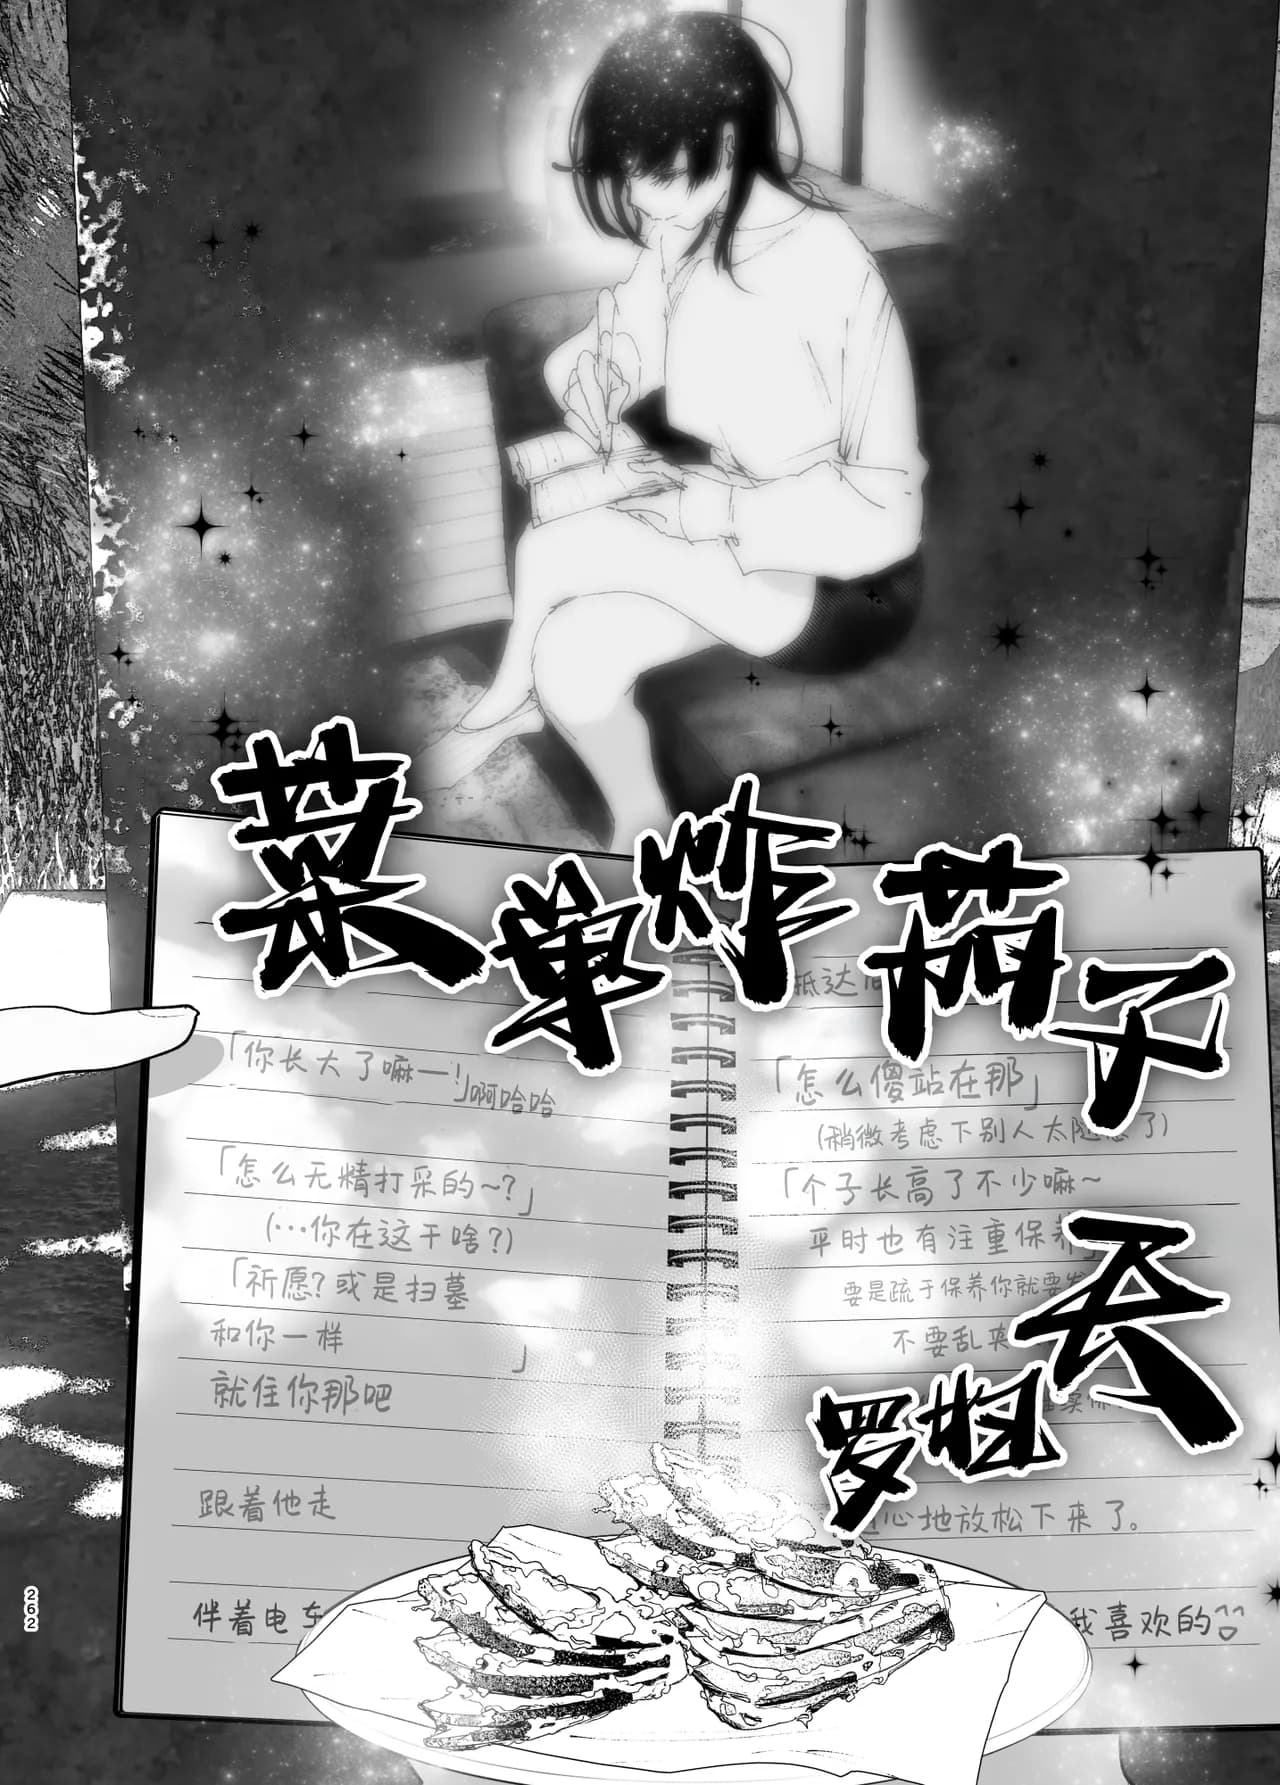 菜单炸茄子
天
罗妇
「你长大了嘛—!」啊哈哈
「怎么无精打采的~?」
(…你在这干啥?)
「祈愿?或是扫墓
和你一样」
就住你那吧
跟着他走
伴着电车
抵达后
「怎么傻站在那」
(稍微考虑下别人太随意了)
「个子长高了不少嘛~
平时也有注重保养
要是疏于保养你就要发
不要乱来
心地放松下来了。
我喜欢的
262